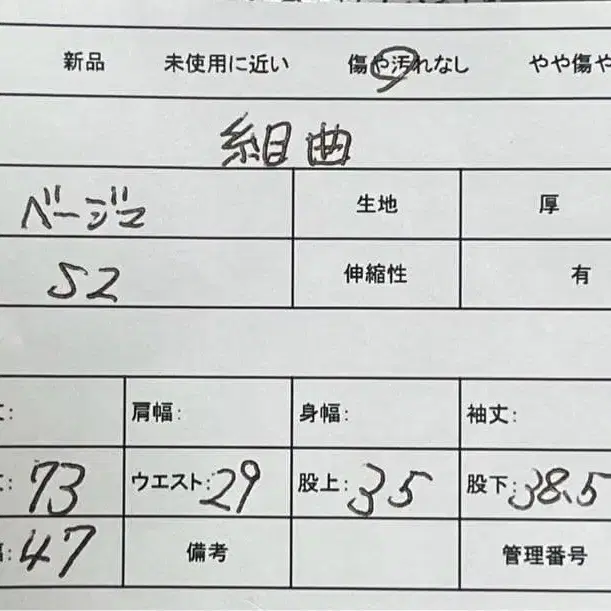 新品 未使用に近い 傷や汚れなし やや傷や
組曲
ベージュ 生地 厚
S2 伸縮性 有
丈: 肩幅: 身幅: 袖丈:
丈: 73 ウエスト: 29 股上: 35 股下: 38.5
幅: 47 備考 管理番号